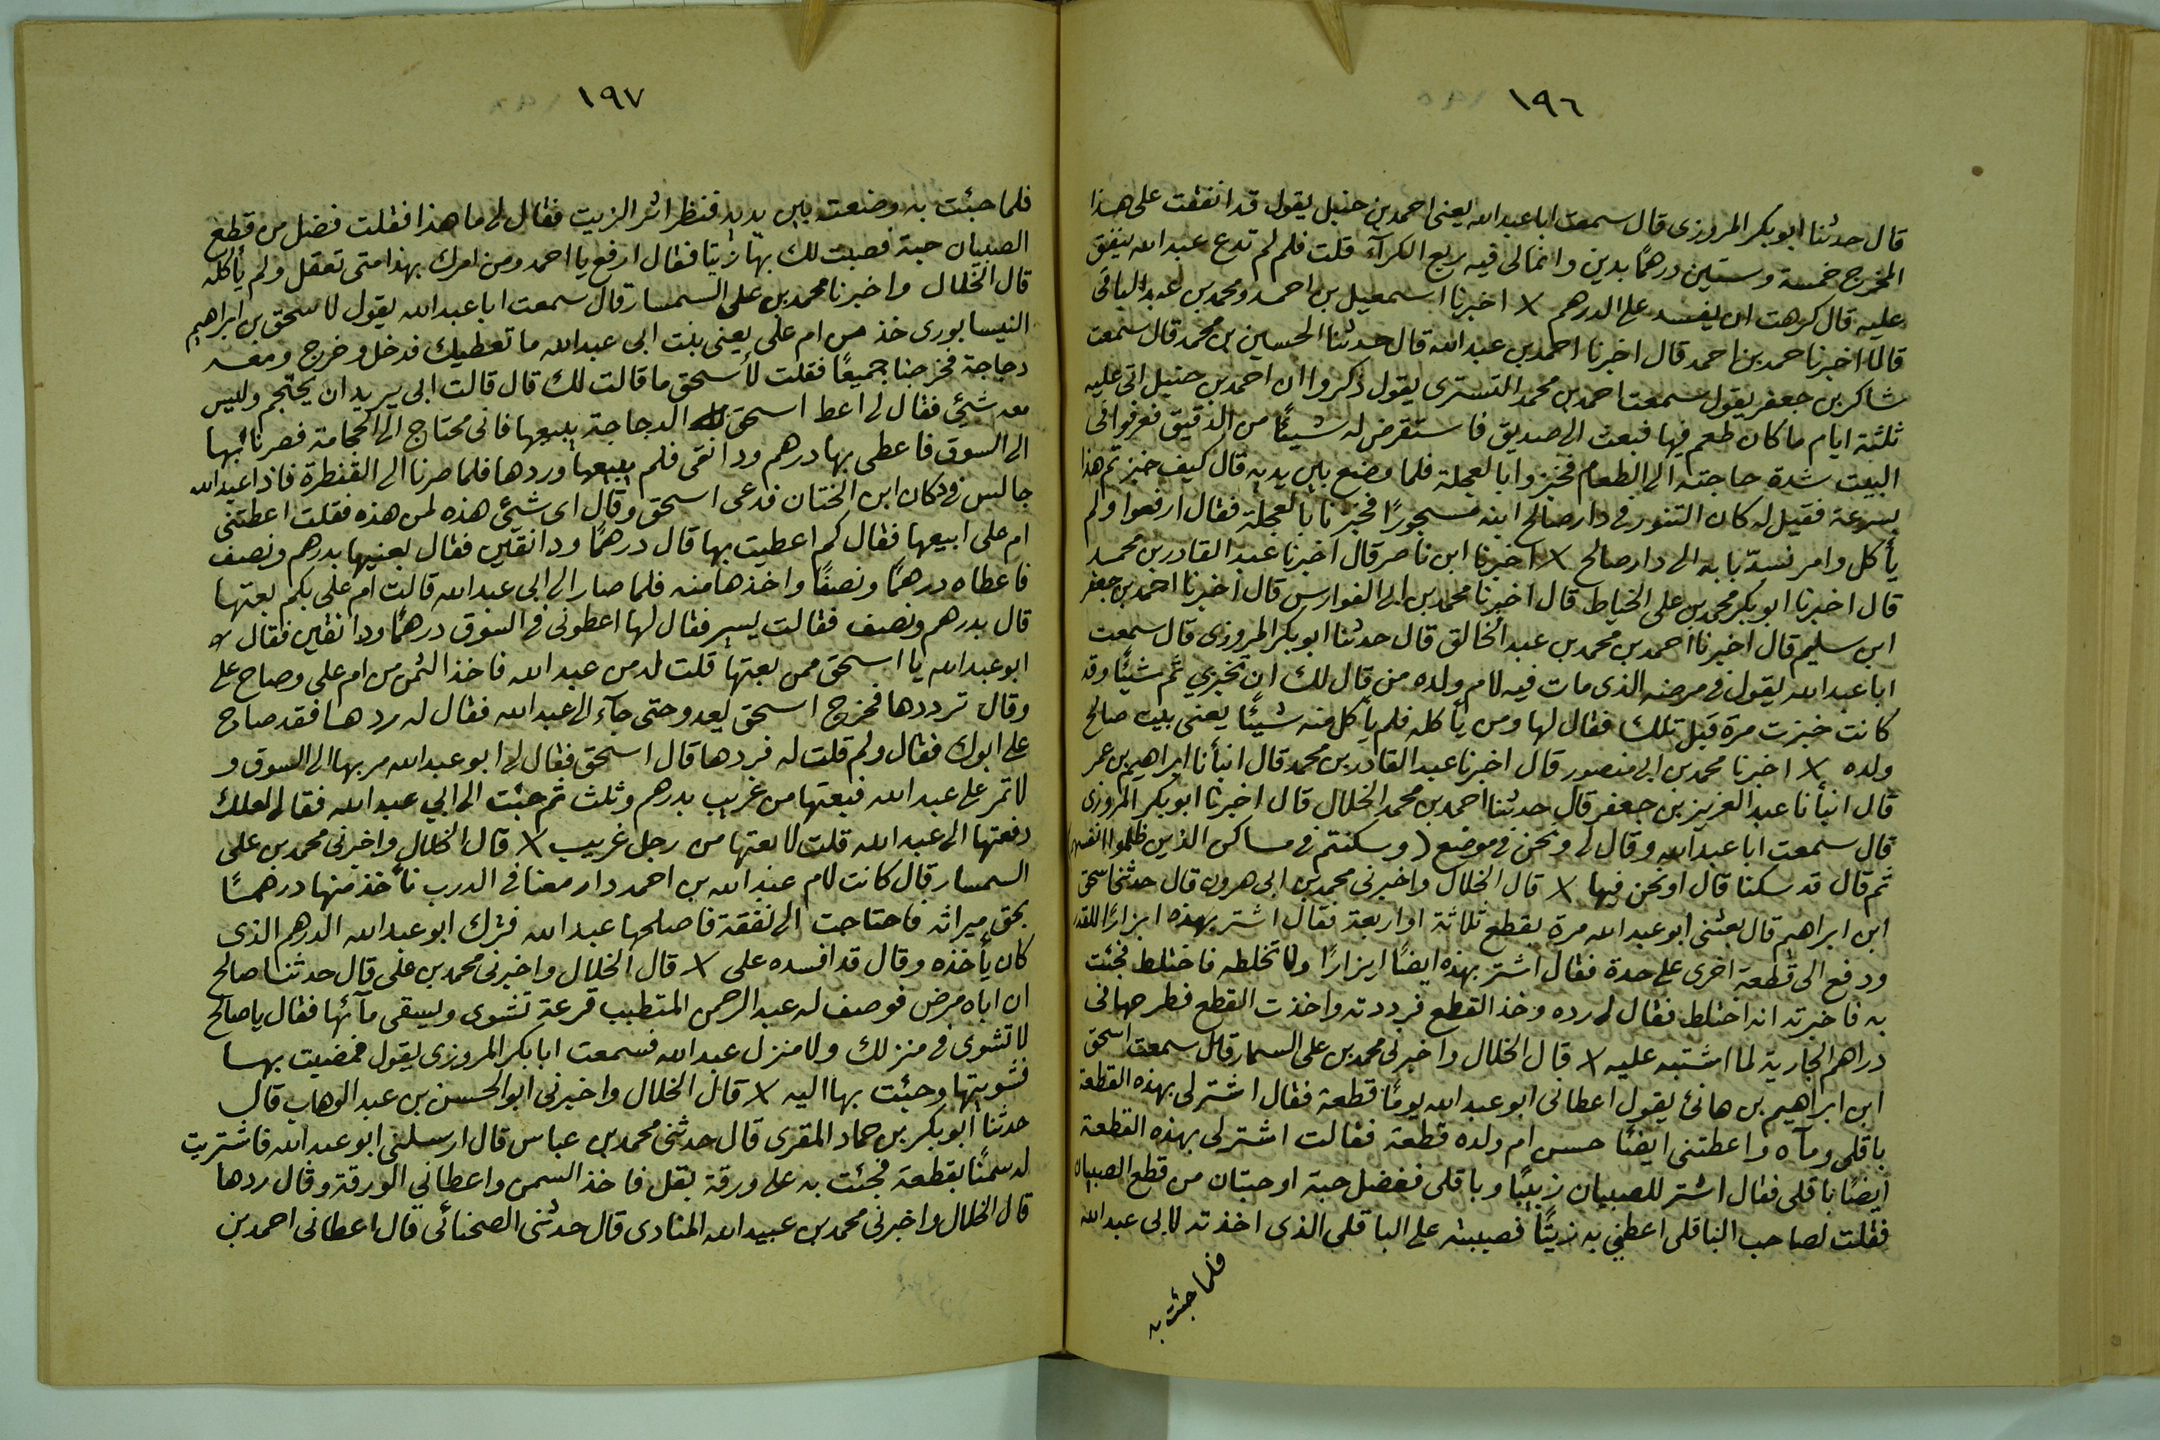 ١٩٦
قال حدثنا ابو بكر المروزى قال سمعت ابا عبد الله يعنى احمد بن حنبل يقول قد انفقت على هذا
المخرج خمسة وستين درهمًا بدين وانما لى فيه ربع الكرآء قلت فلم لم تدع عبد الله ينفق
عليه قال كرهت ان يفسد على الدرهم × اخبرنا اسمعيل بن احمد ومحمد بن عبد الباقى
قالا اخبرنا حمد بن احمد قال اخبرنا احمد بن عبد الله قال حدثنا الحسين بن محمد قال سمعت
شاكر بن جعفر يقول سمعت احمد بن محمد التسترى يقول ذكروا ان احمد بن حنبل اتى عليه
ثلثة ايام ما كان طعم فيها فبعث الى صديق فاستقرض له شيئًا من الدقيق فعرفوا فى
البيت شدة حاجته الى الطعام فخبزوا بالعجلة فلما وضع بين يديه قال كيف خبزتم هذا
بسرعة فقيل له كان التنور فى دار صالح ابنه مسجورًا فخبزنا بالعجلة فقال ارفعوا ولم
يأكل وامر نسدّ بابه الى دار صالح × اخبرنا ابن ناصر قال اخبرنا عبد القادر بن محمد
قال اخبرنا ابو بكر محمد بن على الخياط قال اخبرنا محمد بن ابى الفوارس قال اخبرنا احمد بن جعفر
ابن سليم قال اخبرنا احمد بن محمد بن عبد الخالق قال حدثنا ابو بكر المروزى قال سمعت
ابا عبد الله يقول فى مرضه الذى مات فيه لام ولده من قال لك ان تخبزي ثَم شيئًا وقد
كانت خبزت مرة قبل تلك فقال لها ومن يأكله فلم يأكل منه شيئًا يعنى بيت صالح
ولده × اخبرنا محمد بن ابى منصور قال اخبرنا عبد القادر بن محمد قال انبأنا ابراهيم بن عمر
قال انبأنا عبد العزيز بن جعفر قال حدثنا احمد بن محمد الخلال قال اخبرنا ابو بكر المروزى
قال سمعت ابا عبد الله وقال لى ونحن فى موضع (وسكنتم فى مساكن الذين ظلموا انفسهم)
ثم قال قد سكنا قال او نحن فيها × قال الخلال واخبرنى محمد بن ابى هرون قال حدثنا اسحق
ابن ابراهيم قال بعثنى ابو عبد الله مرة بقطع ثلاثة او اربعة فقال اشتر بهذه ابزارًا للقدر
ودفع الى قطعة اخرى على حدة فقال اشتر بهذه ايضًا ابزارًا ولا تخلطه فاختلط فجئت
به فاخبرته انه اختلط فقال لى رده وخذ القطع فرددته واخذت القطع فطرحها فى
دراهم الجارية لما اشتبه عليه × قال الخلال واخبرنى محمد بن على السمار قال سمعت اسحق
ابن ابراهيم بن هانئ يقول اعطانى ابو عبد الله يومًا قطعة فقال اشتر لى بهذه القطعة
باقلى ومآه واعطتنى ايضًا حسن ام ولده قطعة فقالت اشتر لى بهذه القطعة
ايضًا باقلى فقال اشتر للصبيان زبيبًا وباقلى ففضل حبة او حبتان من قطع الصبيان
فقلت لصاحب الباقلى اعطنى به زيتًا فصببته على الباقلى الذى اخذته لابى عبد الله
فلما جئت به
١٩٧
فلما جئت به وضعته بين يديه فنظر اثر الزيت فقال لى ما هذا فقلت فضل من قطع
الصبيان حبة فصببت لك بها زيتا فقال ارفع يا احمد ومن امرك بهذا متى تعقل ولم يأكله
قال الخلال واخبرنا محمد بن على السمسار قال سمعت ابا عبد الله يقول لاسحق بن ابراهيم
النيسابورى خذ من ام على يعنى بنت ابى عبد الله ما تعطيك فدخل وخرج ومعه
دجاجة فخرجنا جميعًا فقلت لأسحق ما قالت لك قال قالت ابى يريد ان يحتجم وليس
معه شيئ فقال لى اعط اسحق الدجاجة يبيعها فانى محتاج الى الحجامة فصرنا بها
الى السوق فاعطى بها درهم ودانقى فلم يبيعها وردها فلما صرنا الى القنطرة فاذا عبد الله
جالس فى دكان ابن الختان فدعى اسحق وقال اى شئ هذه لمن هذه فقلت اعطتنى
ام على ابيعها فقال كم اعطيت بها قال درهمًا ودانقين فقال بعنيها بدرهم ونصف
فاعطاه درهمًا ونصفًا واخذها منه فلما صار الى ابى عبد الله قالت ام على بكم بعتها
قال بدرهم ونصف فقالت يسير فقال لها اعطونى فى السوق درهمًا ودانقين فقال له
ابو عبد الله يا اسحق ممن بعتها قلت له من عبد الله فاخذ الثمن من ام على وصاح على
وقال ترددها فخرج اسحق يعدو حتى جآء الى عبد الله فقال له ردها فقد صاح
على ابوك فقال ولم قلت له فردها قال اسحق فقال لى ابو عبد الله مر بها الى السوق و
لا تمر على عبد الله فبعتها من غريب بدرهم وثلث ثم جئت الى ابي عبد الله فقال لعلك
دفعتها الى عبد الله قلت لا بعتها من رجل غريب × قال الخلال واخبرنى محمد بن على
السمسار قال كانت لام عبد الله بن احمد دار معنا فى الدرب نأخذ منها درهمًا
بحق ميراثه فاحتاجت الى نفقة فاصلحها عبد الله فترك ابو عبد الله الدرهم الذى
كان يأخذه وقال قد افسده على × قال الخلال واخبرنى محمد بن على قال حدثنا صالح
ان اباه مرض فوصف له عبد الرحمن المتطبب قرعة تشوى ويسقى مآئها فقال يا صالح
لا تشوى فى منزلك ولا منزل عبد الله فسمعت ابا بكر المروزى يقول فمضيت بها
فشويتها وجئت بها اليه × قال الخلال واخبرنى ابو الحسن بن عبد الوهاب قال
حدثنا ابو بكر بن حماد المقرى قال حدثنى محمد بن عباس قال ارسلنى ابو عبد الله فاشتريت
له سمنًا بقطعة فجئت به على ورقة بقل فاخذ السمن واعطاني الورقة وقال ردها
قال الخلال واخبرنى محمد بن عبيد الله المنادى قال حدثنى الصحنائى قال اعطانى احمد بن